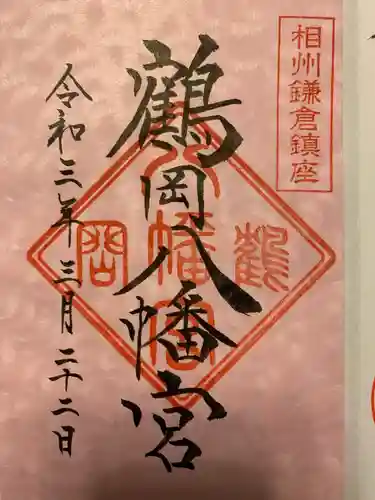 相州鎌倉鎮座
鶴岡八幡宮
鶴岡八幡宮
令和三年三月二十二日